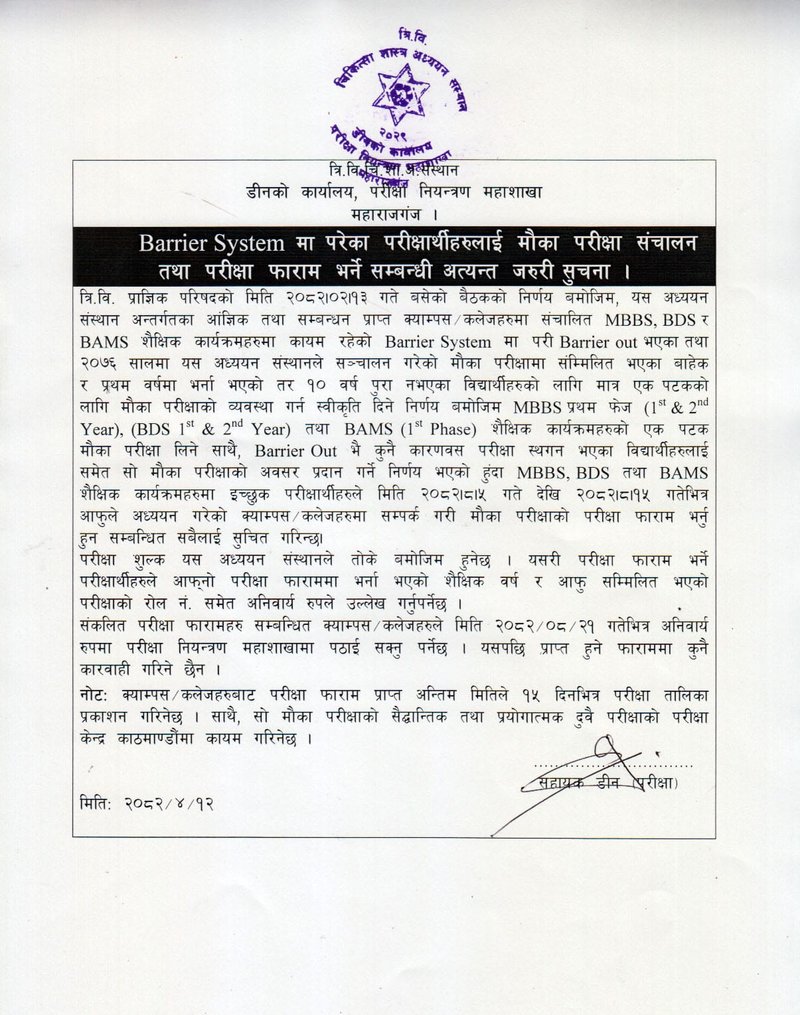 त्रि.वि.
चिकित्सा शास्त्र अध्ययन संस्थान
२०२९
डीनको कार्यालय
परीक्षा नियन्त्रण महाशाखा
महाराजगंज
त्रि.वि.चि.शा.अ.संस्थान
डीनको कार्यालय, परीक्षा नियन्त्रण महाशाखा
महाराजगंज ।
Barrier System मा परेका परीक्षार्थीहरुलाई मौका परीक्षा संचालन
तथा परीक्षा फाराम भर्ने सम्बन्धी अत्यन्त जरुरी सुचना ।
त्रि.वि. प्राज्ञिक परिषदको मिति २०८२।०२।१३ गते बसेको बैठकको निर्णय बमोजिम, यस अध्ययन
संस्थान अन्तर्गतका आंज्ञिक तथा सम्बन्धन प्राप्त क्याम्पस/कलेजहरुमा संचालित MBBS, BDS र
BAMS शैक्षिक कार्यक्रमहरुमा कायम रहेको Barrier System मा परी Barrier out भएका तथा
२०७६ सालमा यस अध्ययन संस्थानले सञ्चालन गरेको मौका परीक्षामा संम्मिलित भएका बाहेक
र प्रथम वर्षमा भर्ना भएको तर १० वर्ष पुरा नभएका विद्यार्थीहरुको लागि मात्र एक पटकको
लागि मौका परीक्षाको व्यवस्था गर्न स्वीकृति दिने निर्णय बमोजिम MBBS प्रथम फेज (1st & 2nd
Year), (BDS 1st & 2nd Year) तथा BAMS (1st Phase) शैक्षिक कार्यक्रमहरुको एक पटक
मौका परीक्षा लिने साथै, Barrier Out भै कुनै कारणवस परीक्षा स्थगन भएका विद्यार्थीहरुलाई
समेत सो मौका परीक्षाको अवसर प्रदान गर्ने निर्णय भएको हुंदा MBBS, BDS तथा BAMS
शैक्षिक कार्यक्रमहरुमा इच्छुक परीक्षार्थीहरुले मिति २०८२।८।५ गते देखि २०८२।८।१५ गतेभित्र
आफुले अध्ययन गरेको क्याम्पस/कलेजहरुमा सम्पर्क गरी मौका परीक्षाको परीक्षा फाराम भर्नु
हुन सम्बन्धित सबैलाई सुचित गरिन्छ।
परीक्षा शुल्क यस अध्ययन संस्थानले तोके बमोजिम हुनेछ । यसरी परीक्षा फाराम भर्ने
परीक्षार्थीहरुले आफ्नो परीक्षा फाराममा भर्ना भएको शैक्षिक वर्ष र आफु सम्मिलित भएको
परीक्षाको रोल नं. समेत अनिवार्य रुपले उल्लेख गर्नुपर्नेछ ।
संकलित परीक्षा फारामहरु सम्बन्धित क्याम्पस/कलेजहरुले मिति २०८२/०८/२१ गतेभित्र अनिवार्य
रुपमा परीक्षा नियन्त्रण महाशाखामा पठाई सक्नु पर्नेछ । यसपछि प्राप्त हुने फाराममा कुनै
कारवाही गरिने छैन ।
नोट: क्याम्पस/कलेजहरुबाट परीक्षा फाराम प्राप्त अन्तिम मितिले १५ दिनभित्र परीक्षा तालिका
प्रकाशन गरिनेछ । साथै, सो मौका परीक्षाको सैद्धान्तिक तथा प्रयोगात्मक दुवै परीक्षाको परीक्षा
केन्द्र काठमाण्डौंमा कायम गरिनेछ ।
सहायक डीन (परीक्षा)
मिति: २०८२/४/१२